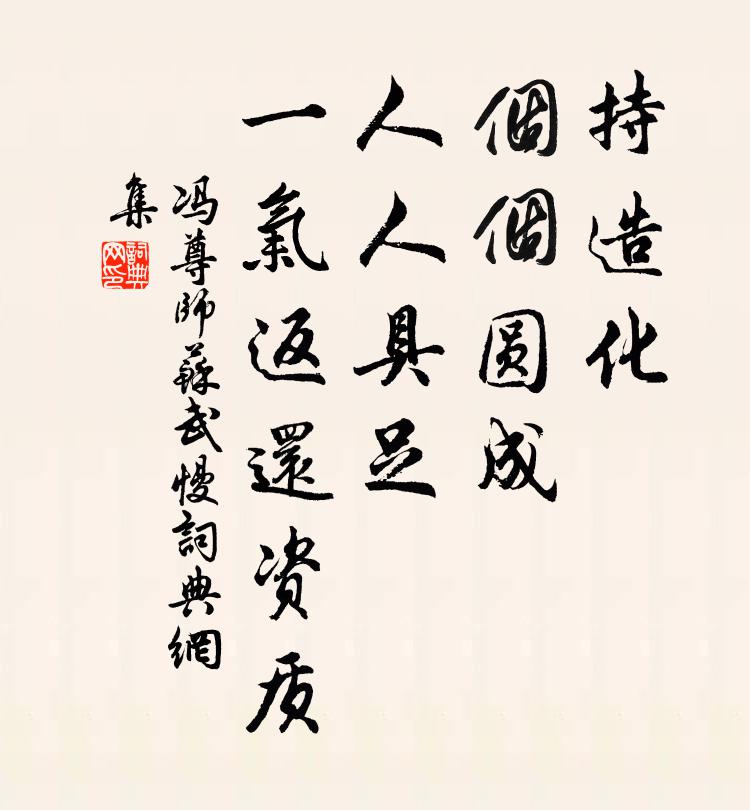 持造化
個個圆成
人人具足
一氣返還资质
冯尊師蘇武慢詞典網
集
詞典
网印